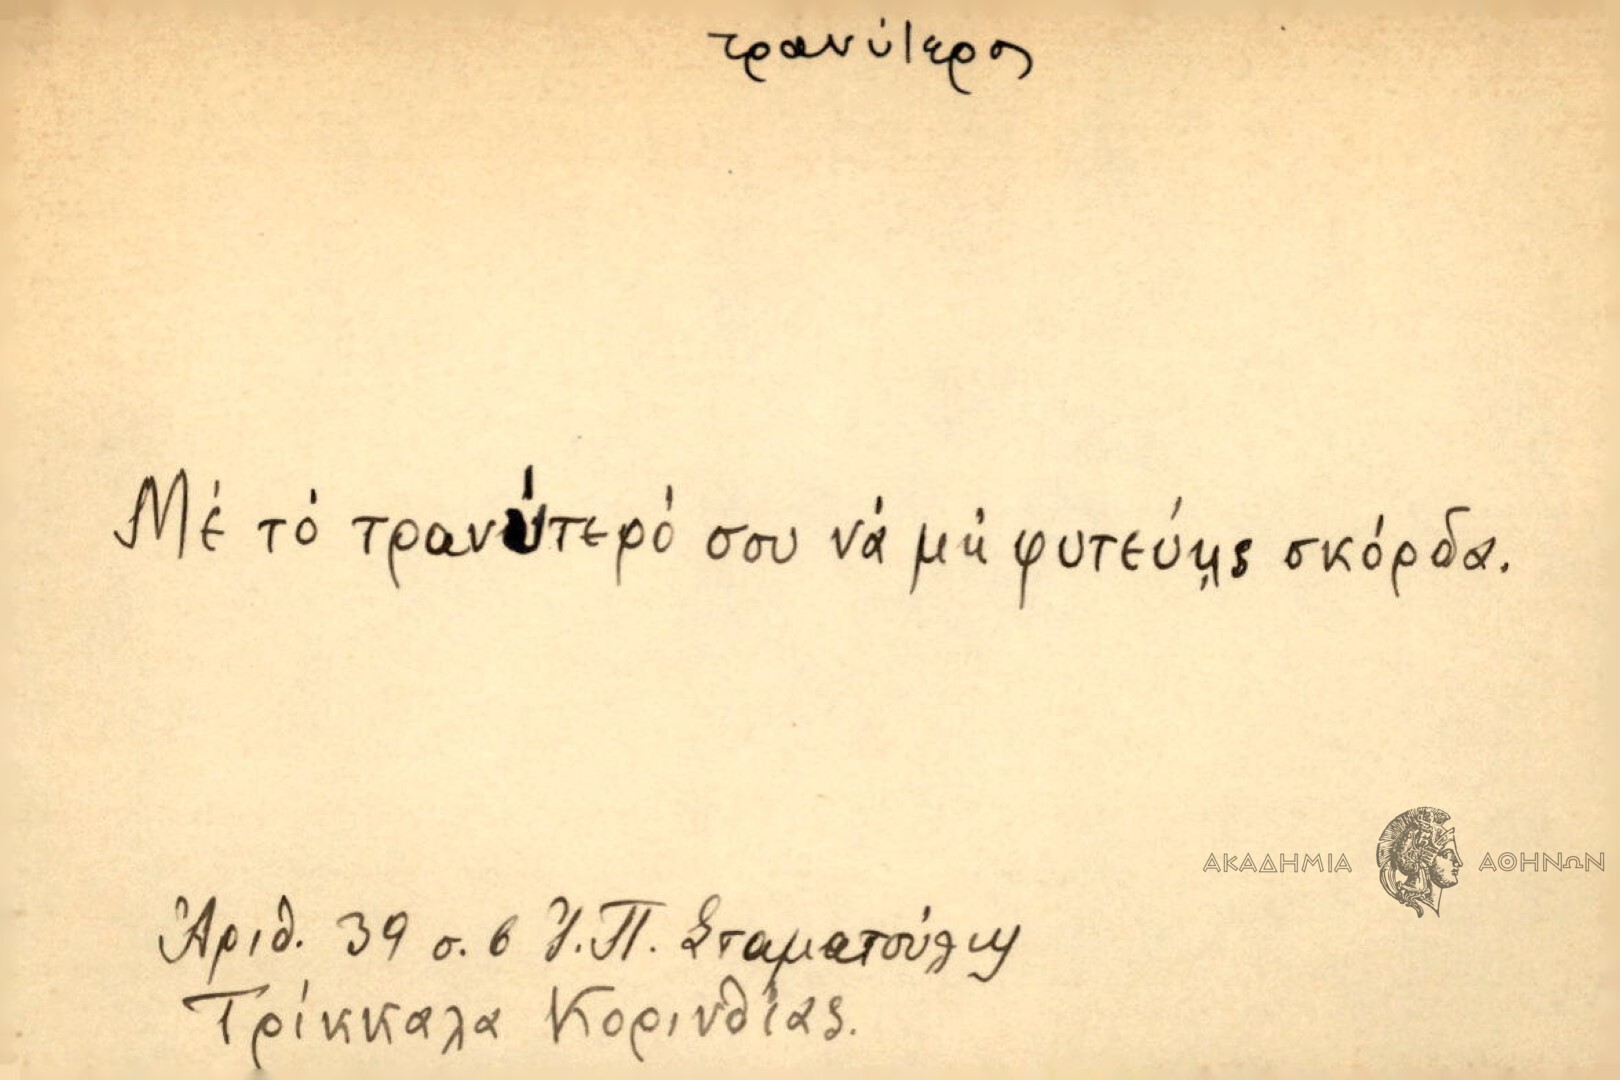 τρανύτερος
Μέ τό τρανύτερό σου νά μή φυτεύῃς σκόρδα.
ΑΚΑΔΗΜΙΑ ΑΘΗΝΩΝ
Ἀριθ. 39 σ. 6 Ἰ. Π. Σταματούλη
Τρίκκαλα Κορινθίας.